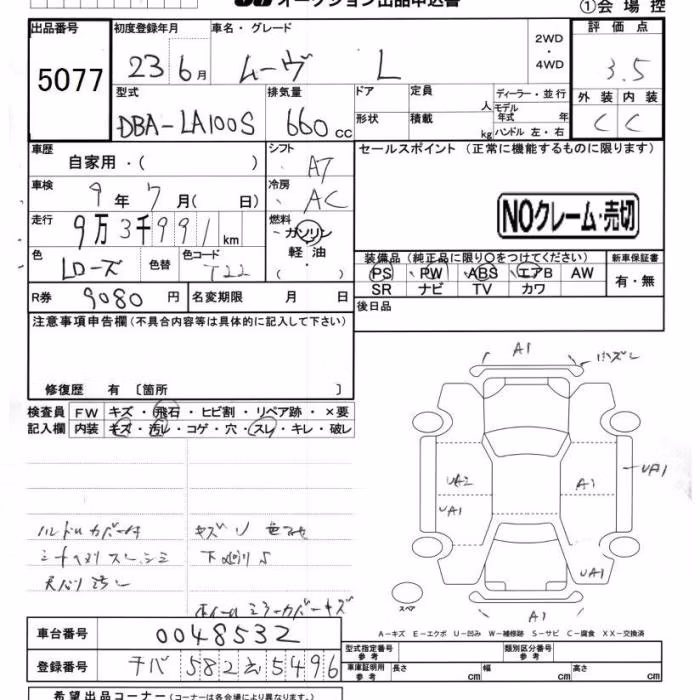 オークション出品申込書
①会場控
出品番号 初度登録年月 車名・グレード 2WD ・ 4WD 評価点
5077 23年6月 ムーヴ L 3.5
型式 排気量 ドア 定員 人 ディーラー・並行 外装 内装
DBA-LA100S 660cc 形状 積載 kg モデル年式 年 ハンドル 左・右 C C
車歴 シフト セールスポイント (正常に機能するものに限ります)
自家用・( ) AT
車検 9年7月( 日) 冷房 AC
NOクレーム・売切
走行 9万3千991km 燃料 ガソリン 軽油 ( )
色 Lローズ 色替 色コード T22
装備品 (純正品に限り○をつけてください) 新車保証書
PS PW ABS エアB AW 有・無
SR ナビ TV カワ
R券 9080円 名変期限 月 日 後日品
注意事項申告欄 (不具合内容等は具体的に記入して下さい)
修復歴 有 〔箇所 〕
検査員 FW キズ・飛石・ヒビ割・リペア跡・×要
記入欄 内装 キズ・汚レ・コゲ・穴・スレ・キレ・破レ
A1
UA2 A1 UA1
UA1
UA1
A1
ハンドルカバー付 キズ U 色アセ
シートヘタリ スレ、シミ 下廻りS
天バリ汚レ
ホイール ミラーカバーキズ
スペア
A-キズ E-エクボ U-凹み W-補修跡 S-サビ C-腐食 XX-交換済
車台番号 0048532
登録番号 チバ 582 え 5496
型式指定番号 参考 類別区分番号 参考
車庫証明用 参考 長さ cm 幅 cm 高さ cm
希望出品コーナー (コーナーは各会場により異なります。)